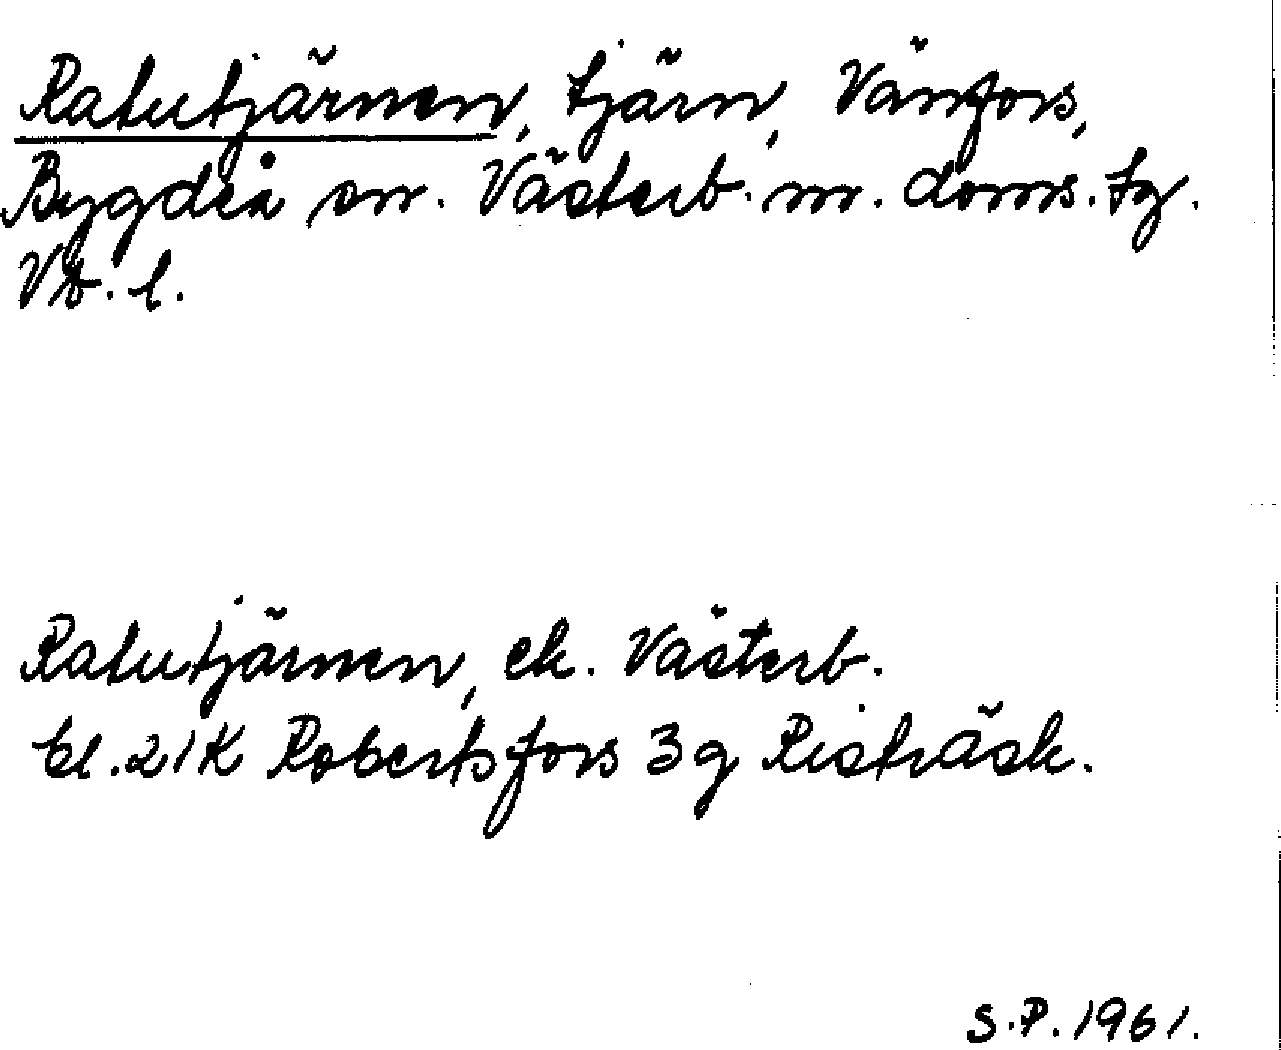 Ratutjärnen, tjärn, Vänfors,
Bygdeå sn. Västerb. m. doms. tg.
Vb. l.
Ratutjärnen, ek. Västerb.
bl. 21K Robertsfors 3g Risträsk.
S.P. 1961.